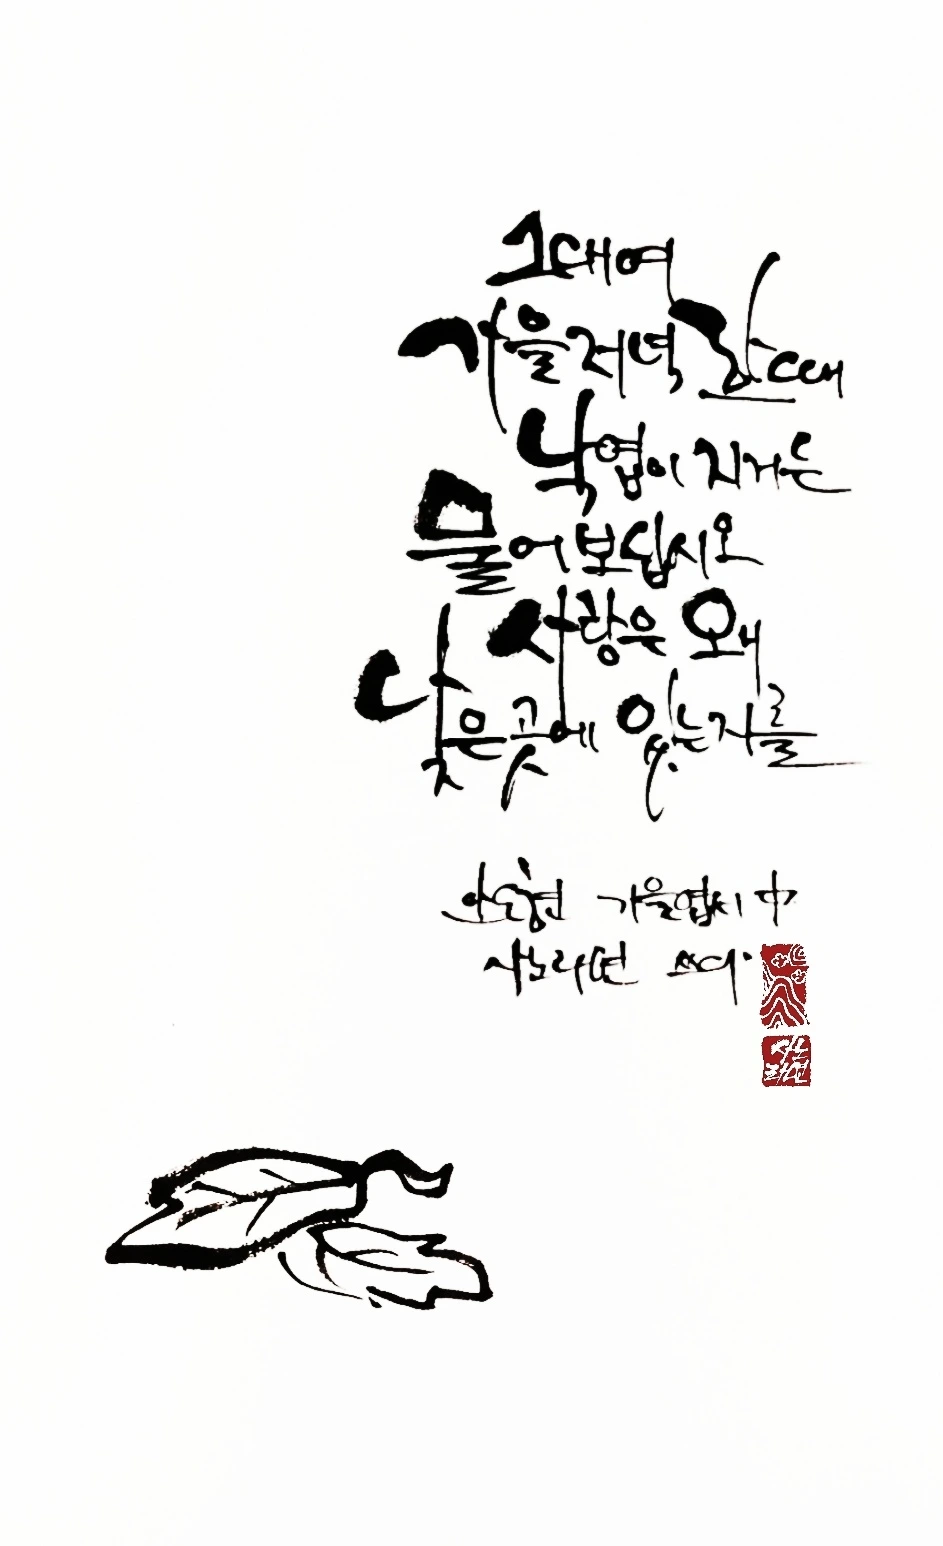 그대여
가을 저녁 한때
낙엽이 지거든
물어보십시오
사랑은 왜
낮은 곳에 있는지를
안도현 가을엽서 中